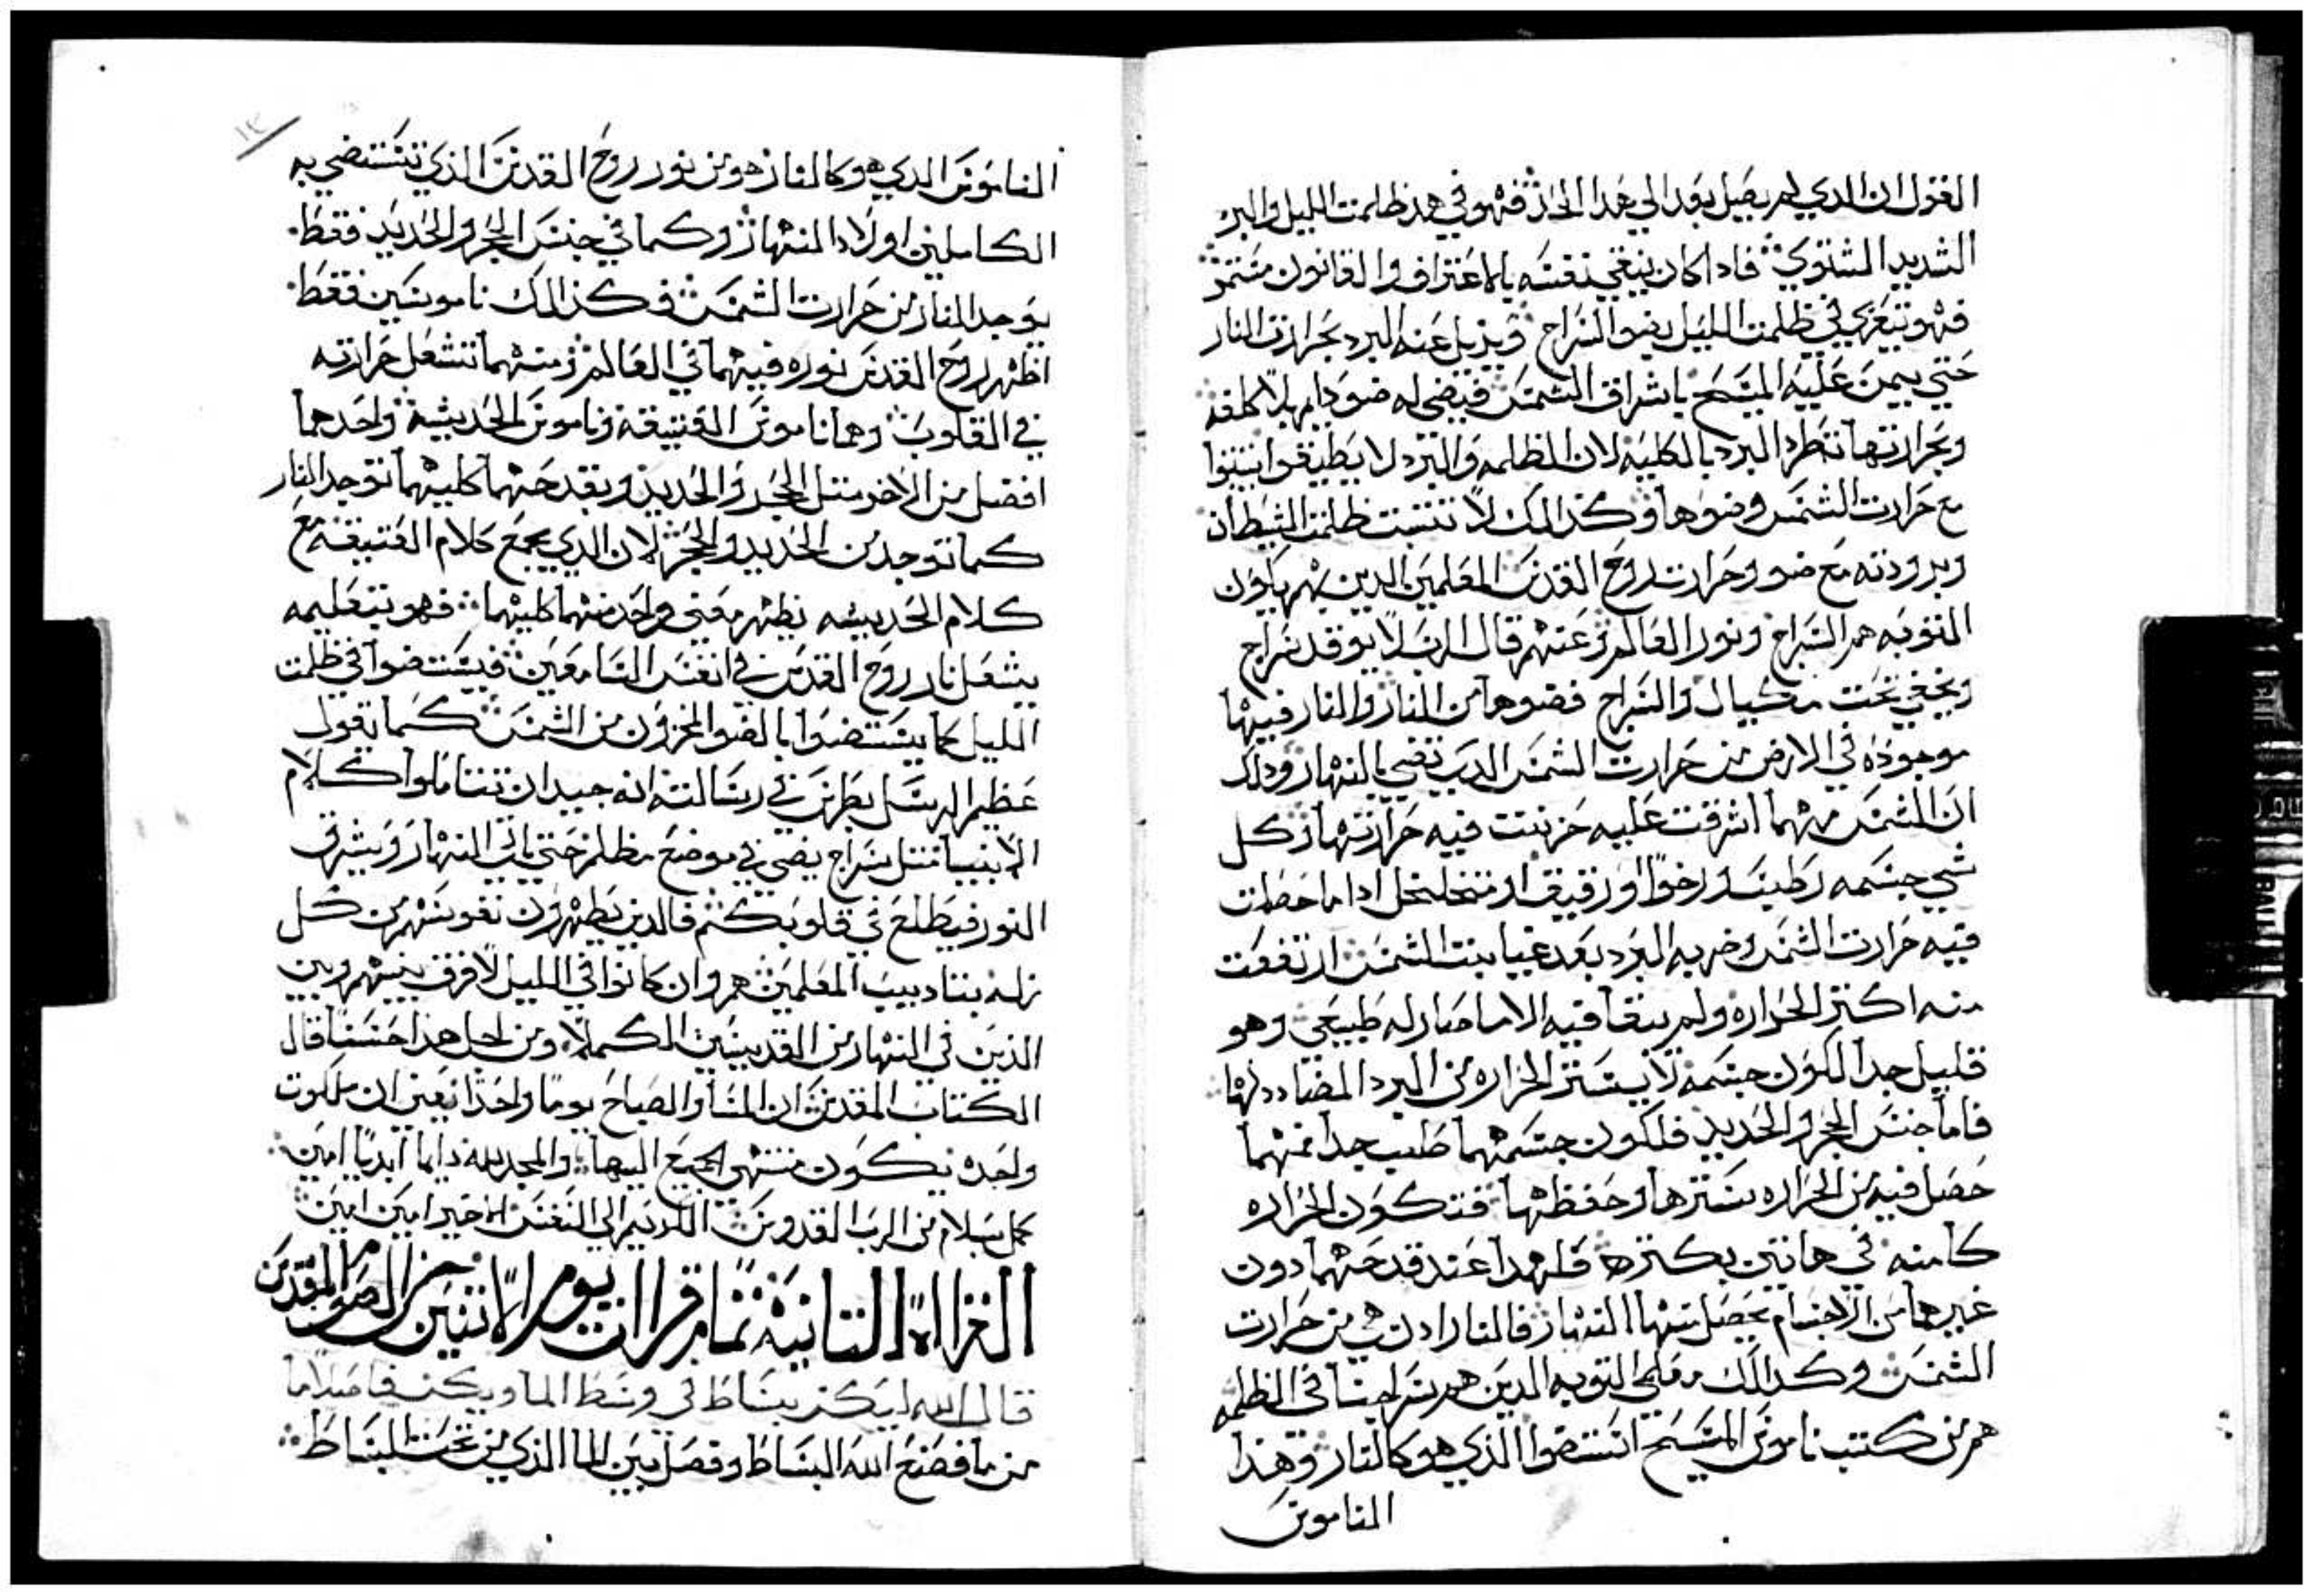 القول ان الدي لم يصل بعد الي هدا الحد فهو في هد ظلمت الليل والبرد
الشديد الشتوي فادا كان ينقي نفسه بالاعتراف والقانون مستمر
فهو يتعزي في ظلمت الليل بضو السراج ويزيل عنه البرد بحرارت النار
حتي يمن عليه المسيح باشراق الشمس فيضي له ضو دايم بلا كلفه
وبحرارتها تطرد البرد بالكليه لان الظلمه والبرد لا يطيقوا يثبتوا
مع حرارت الشمس وضوها وكدالك لا تثبت ظلمت الشيطان
وبرودته مع ضو وحرارت روح القدس المعلمين الدين بهم يكون
التوبه هم السراج ونور العالم وعنهم قال الرب لا يوقد سراج
ويخفي تحت مكيال والسراج فضوها من النار والنار فيها
موجوده في الارض من حرارت الشمس الدي تضي بالنهار ودلك
ان الشمس مهما اشرقت عليه خزنت فيه حرارتها وكل
شي جسمه رطب ورخوا او رقيق او متخلخل ادا ما حصلت
فيه حرارت الشمس وضربه البرد بعد غيابت الشمس ارتفعت
منه اكتر الحراره ولم يبقا فيه الا ما صار له طبيعي وهو
قليل جدا لكون جسمه لا يستر الحراره من البرد المضادد لها
فاما جنس الحجر والحديد فلكون جسمهما صلب جدا فمهما
حصل فيه من الحراره سترها وحفظها فتكون الحراره
كامنه في هاتين بكتره فلهدا عند قدحهما دون
غيرهما من الاجسام يحصل منها النهار فالنار ادن هي من حرارت
الشمس وكدالك معلمي التوبه الدين هم سراجنا في الظلمه
هم من كتب ناموس المسيح استضوا الذي هو كالنار وهذا
الناموس
١٣
الناموس الدي هو كالنار هو من نور روح القدس الذي تستضي به
الكاملين اولاد النهار وكما في جنس الحجر والحديد فقط
يوجد النار من حرارت الشمس فكذالك ناموسين فقط
اظهر روح القدس نوره فيهما في العالم ومنهما تشعل حرارته
في القلوب وهما ناموس العتيقه وناموس الحديثه واحدهما
افضل من الاخر مثل الحجر والحديد وبقدحهما كليهما توجد النار
كما توجد من الحديد والحجر لان الدي يجمع كلام العتيقه مع
كلام الحديثه يظهر معني واحد منهما كليهما فهو بتعليمه
يشعل نار روح القدس في انفس السامعين فيستضوا في ظلمت
الليل كما يستضوا بالضو المخزون من الشمس كما يقول
عظيم الرسل بطرس في رسالته انه جيد ان تتاملوا كلام
الانبيا مثل سراج يضي في موضع مظلم حتي ياتي النهار ويشرق
النور فيطلع في قلوبكم فالدين يطهرون نفوسهم من كل
زله بتاديب المعلمين هم وان كانوا في الليل لا فرق بينهم وبين
الذين في النهار من القديسين الكملا ومن اجل هدا حسنا قال
الكتاب المقدس ان المسا والصباح يوما واحدا يعني ان ملكوت
واحده يكون منتهي الجميع اليها والمجد لله دايما ابديا امين
كمل بسلام من الرب القدوس الكريم الي النفس الاخير امين امين
القراه التانيه تمام قرات يوم الاتنين من الصوم المقدس
قال الله ليكن بساط في وسط الما ويكن فاصلا ما
من ما فصنع الله البساط وفصل بين الما الذي من تحت البساط